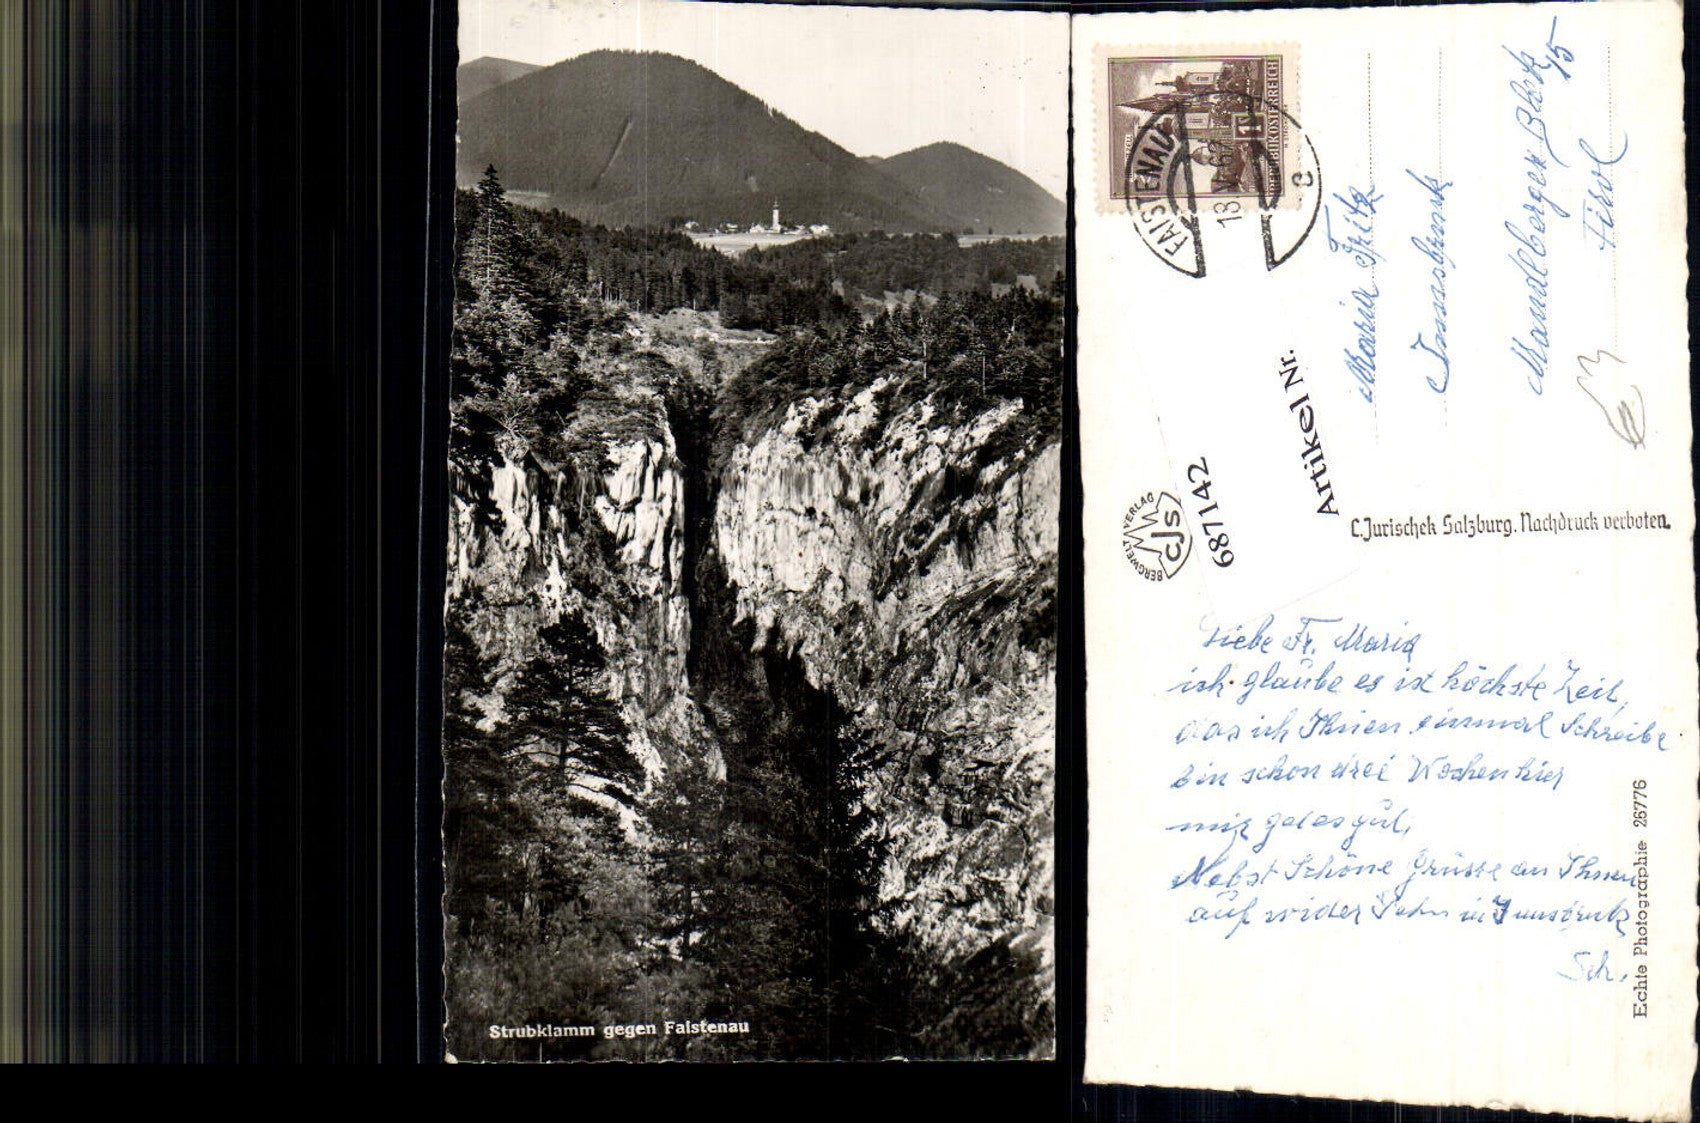 Strubklamm gegen Faistenau
REPUBLIK ÖSTERREICH
FAISTENAU
18. V. 62
c
Maria Fritz
Innsbruck
Mandlberger Block
15
Tirol
Artikel Nr.
687142
BERGWELT VERLAG
CJS
C.Jurischek Salzburg. Nachdruck verboten.
Liebe Fr. Maria
ich glaube es ist höchste Zeit,
das ich Ihnen einmal Schreibe
bin schon drei Wochen hier
mir get es gut,
Nebst Schöne Grüsse an Ihnen
auf wider Sehn in Innsbruck
Sch.
Echte Photographie 26776